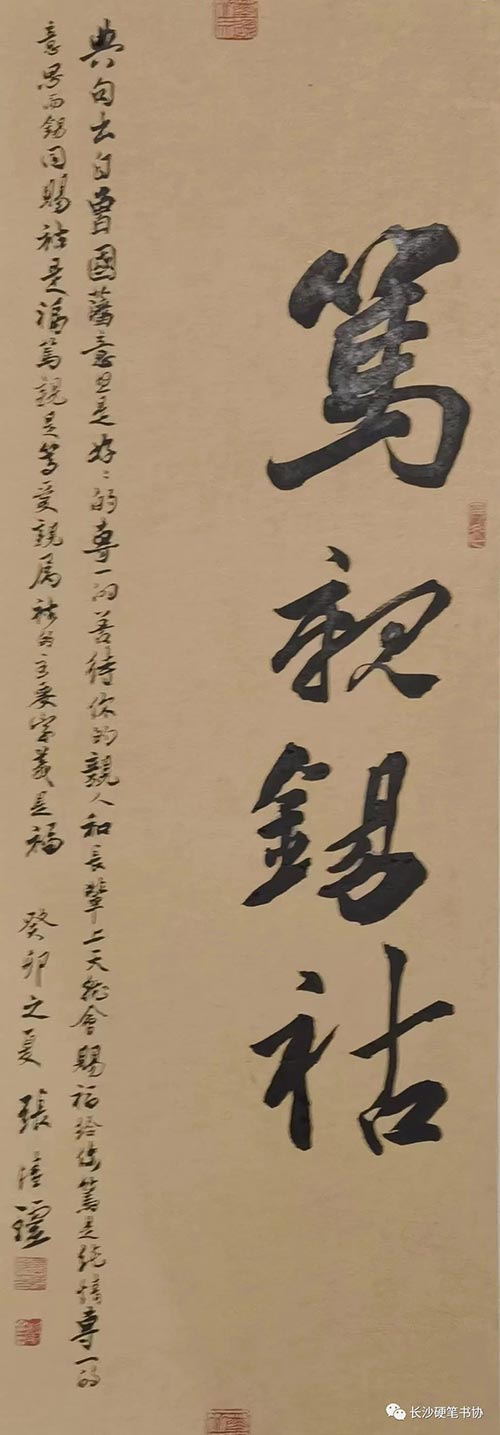 笃親錫祜
典句出自曾國藩意思是好好的專一的善待你的親人和長輩上天就會賜福給你篤是純情專一的
意思而錫同賜祜是福篤親是篤愛親属祜的主要字義是福 癸卯之夏 張
长沙硬笔书协